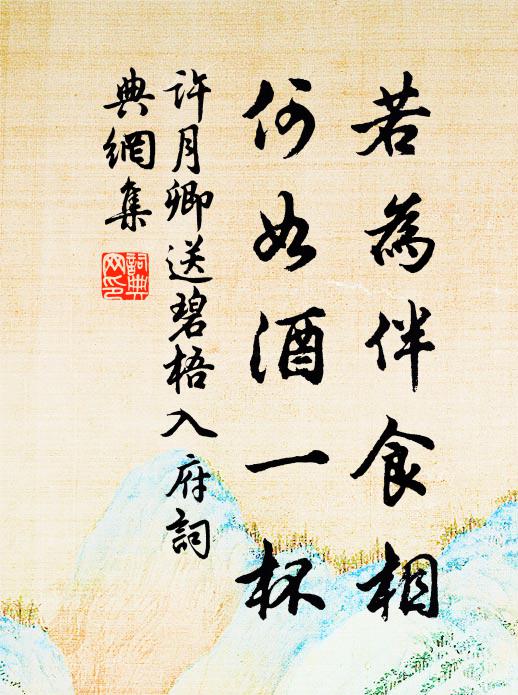 若為伴食相
何如酒一杯
許月卿送碧梧入府詞
典網集
詞典
网印